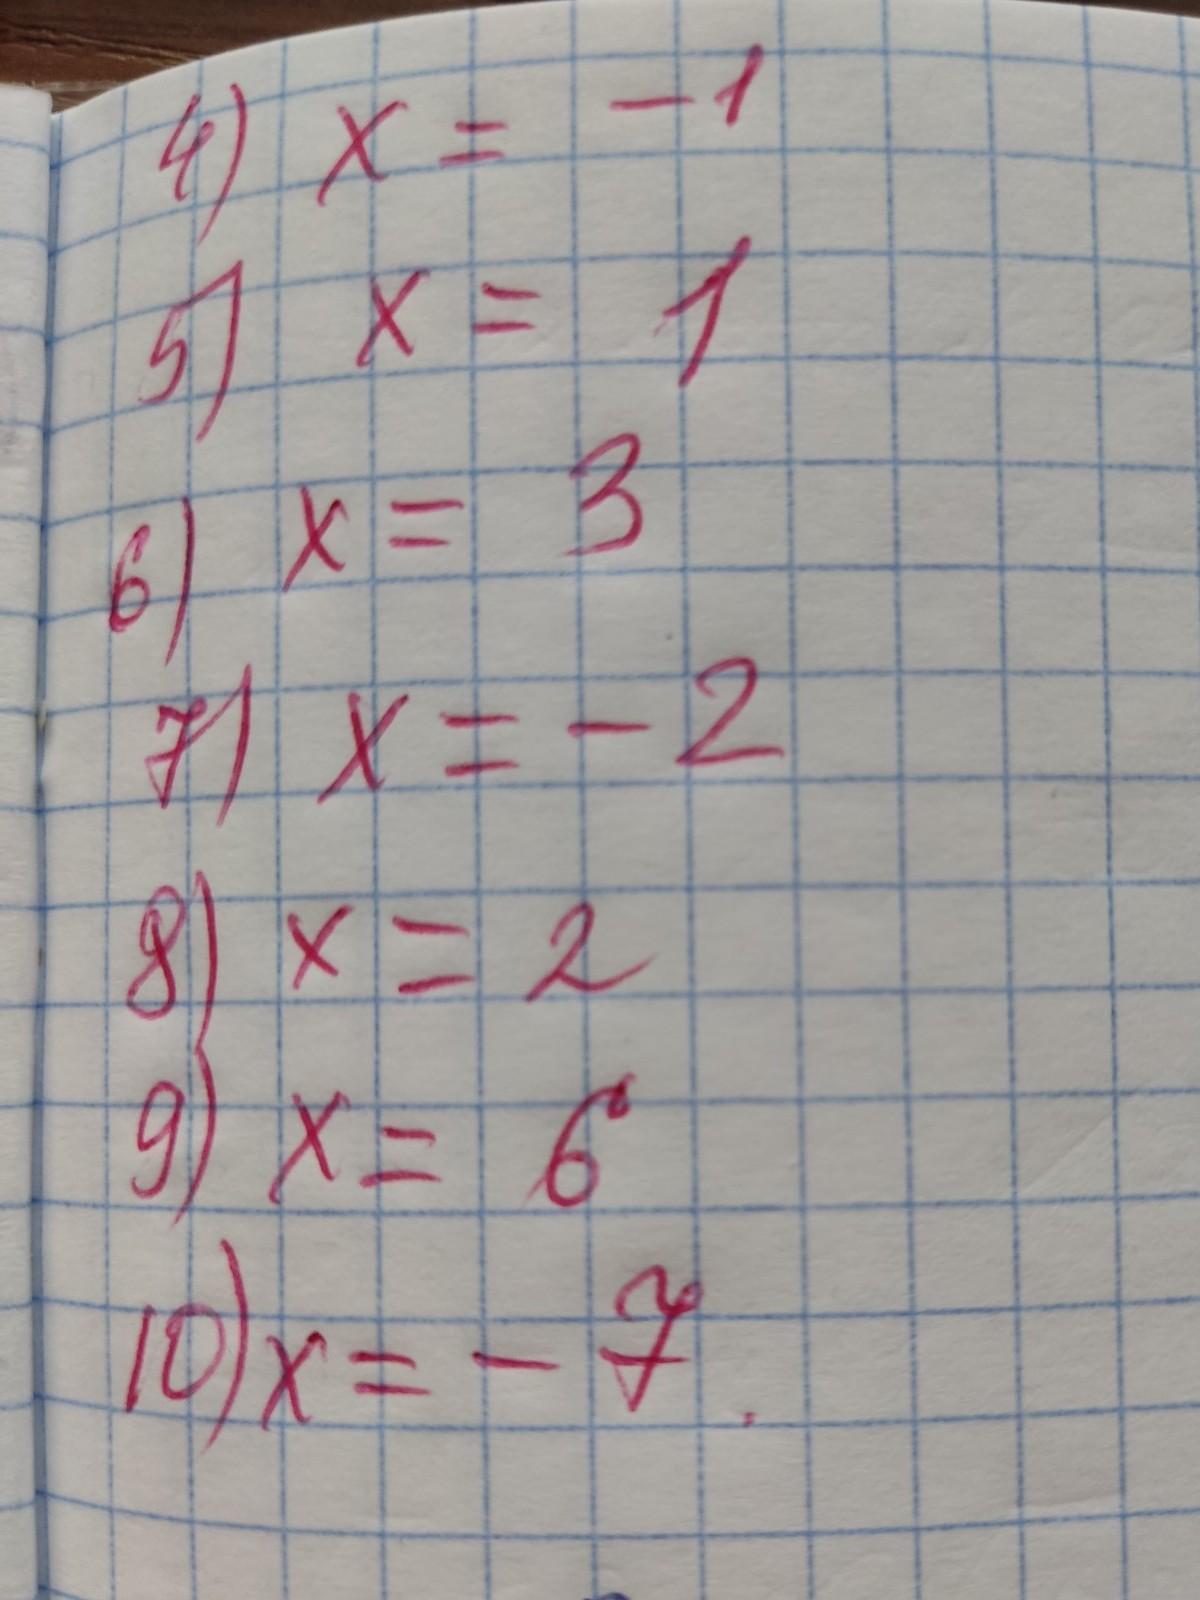 4) x = -1
5) x = 1
6) x = 3
7) x = -2
8) x = 2
9) x = 6
10) x = -7.